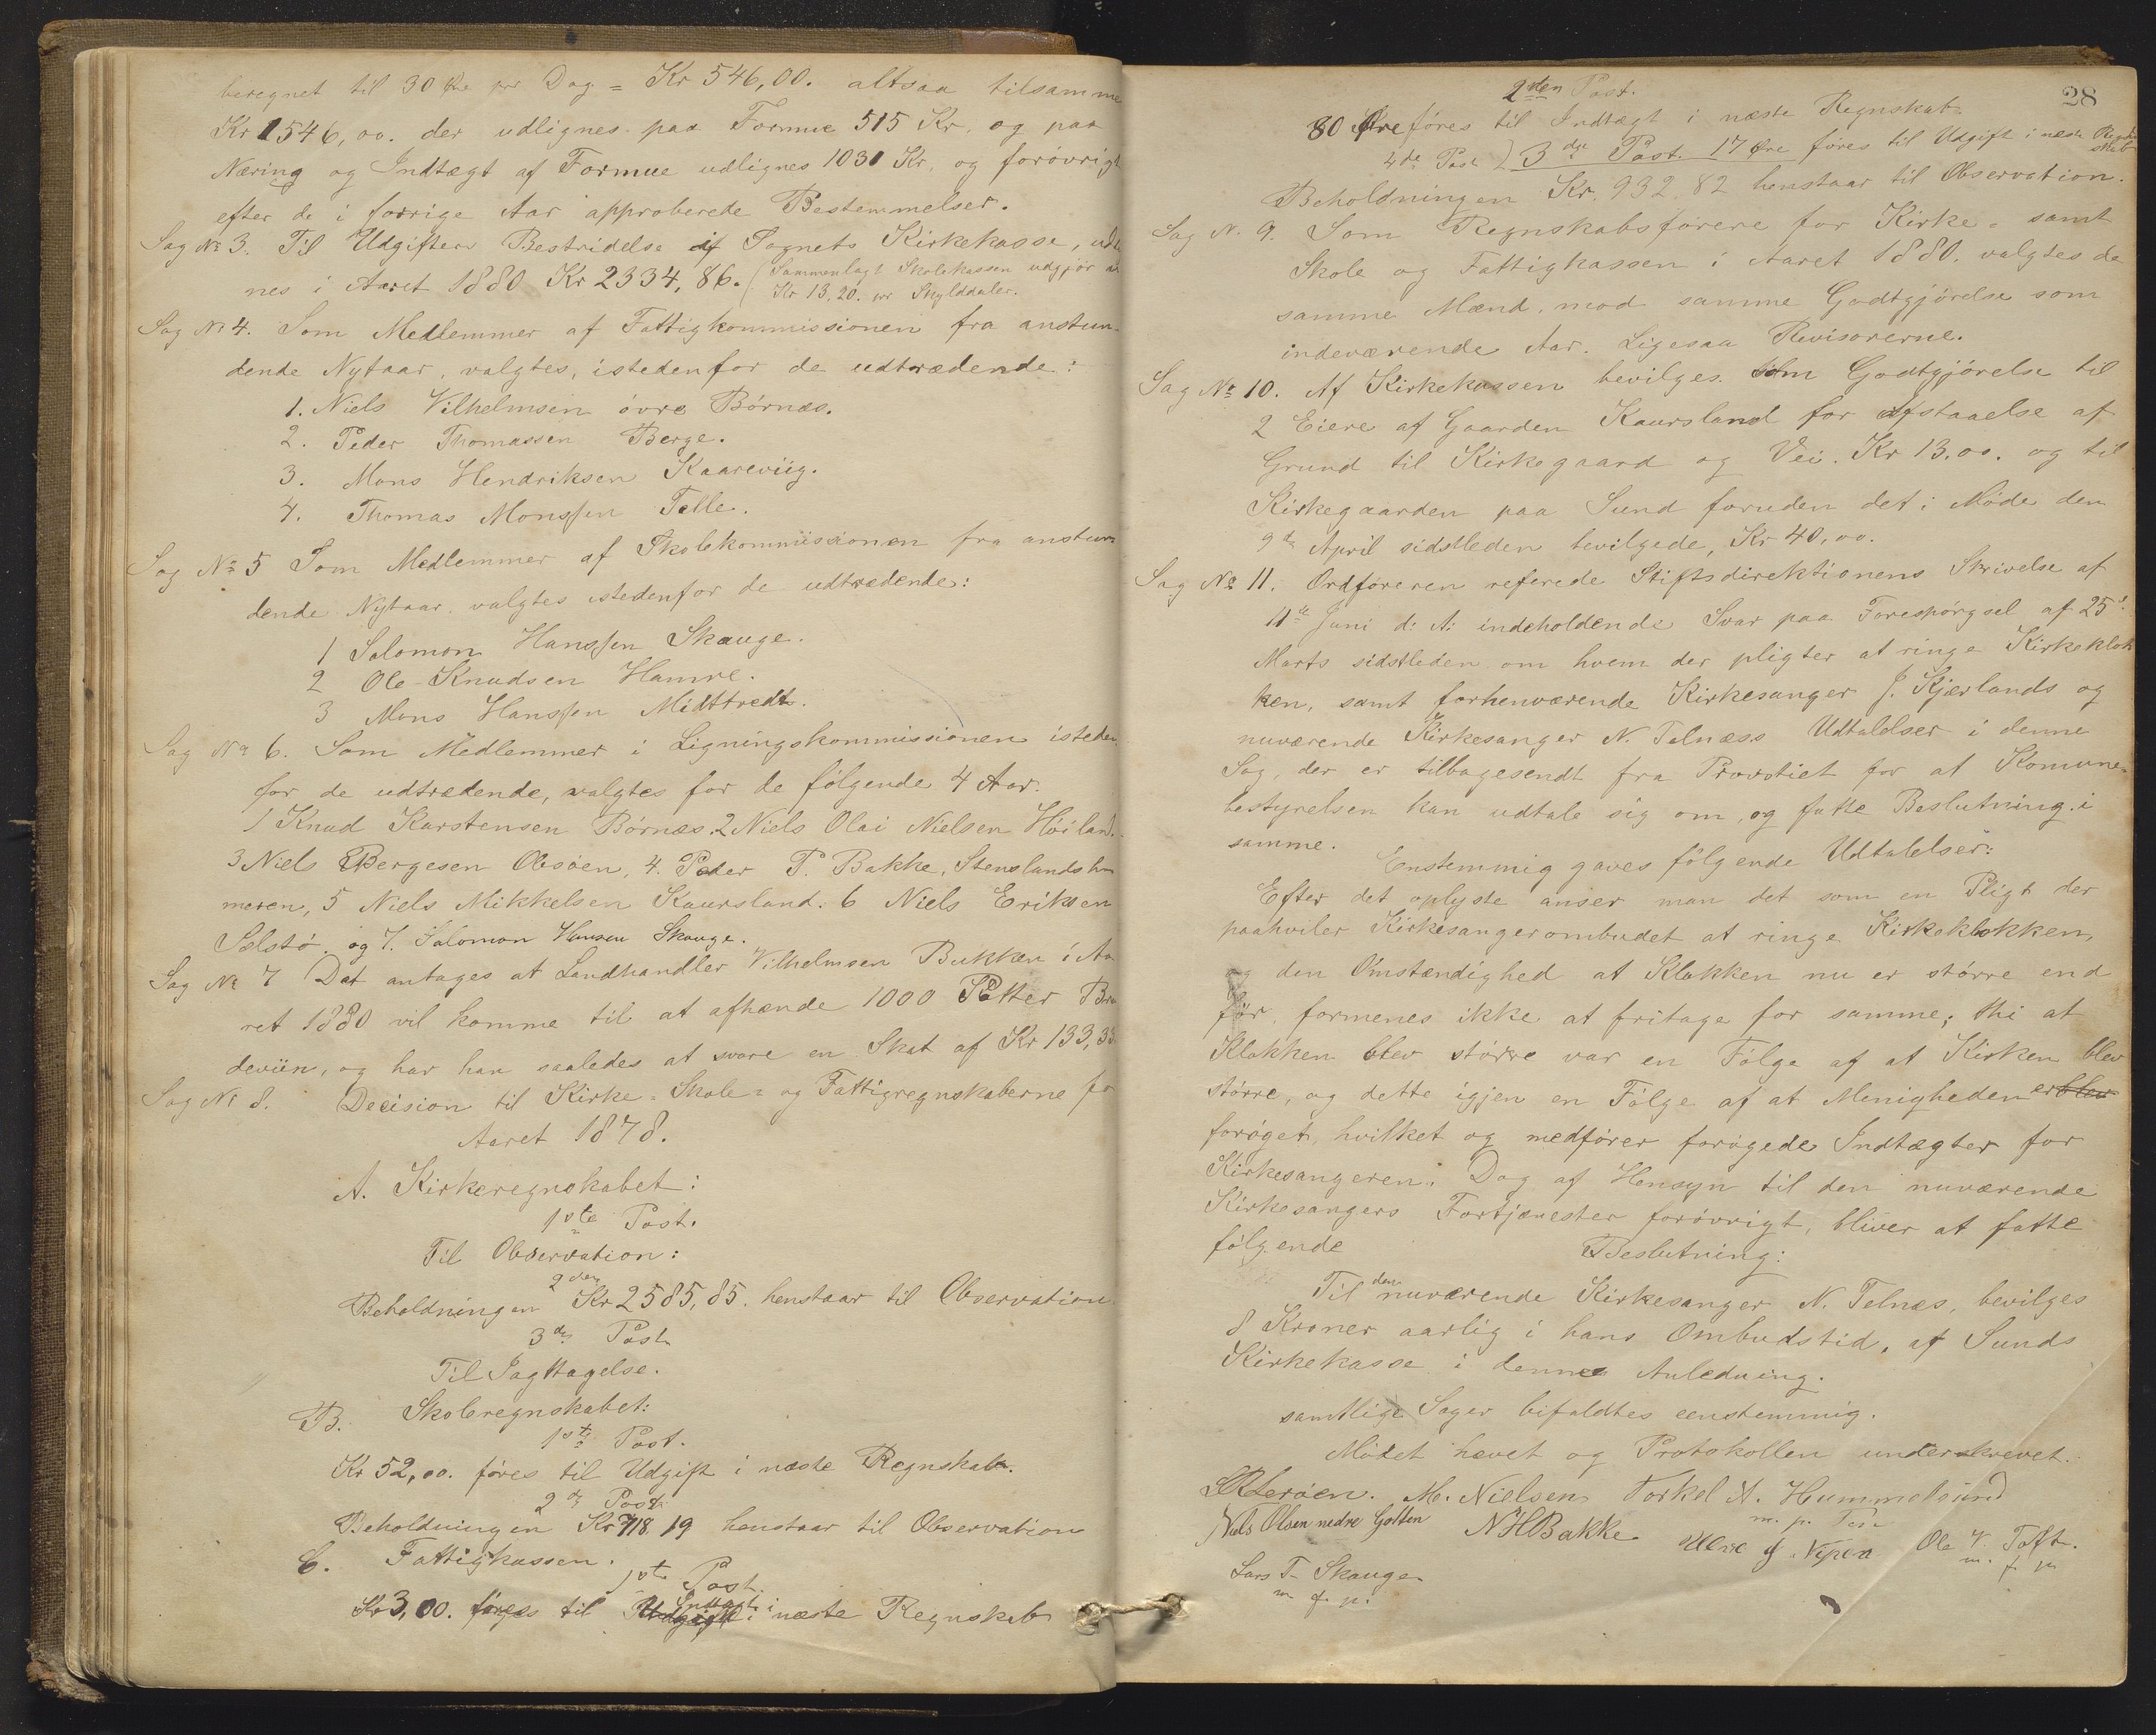 beregnet til 30 Øre pr Dag = Kr 546,00. altsaa tilsamme
Kr 1546,00. der udlignes paa Formue 515 Kr, og paa
Næring og Indtægt af Formue udlignes 1031 Kr, og forövrigt
efter de i forrige Aar approberede Bestemmelser.
Sag № 3. Til Udgifters Bestridelse af Sognets Kirkekasse, udlig
nes i Aaret 1880 Kr 2334,86. (Sammenlagt Skolekassen udgjör
Kr 13,20. pr Skylddaler.
Sag № 4. Som Medlemmer af Fattigkommissionen fra anstun-
dende Nytaar, valgtes, istedenfor de udtrædende:
1. Niels Vilhelmsen övre Börnes.
2. Peder Thomassen Berge.
3. Mons Hendriksen Kaareviig.
4. Thomas Monssen Telle.
Sag № 5 Som Medlemmer af Skolekommissionen fra anstun
dende Nytaar valgtes istedenfor de udtrædende:
1 Salomon Hanssen Skauge.
2 Ole Knudsen Hamre.
3 Mons Hanssen Midttredt.
Sag № 6. Som Medlemmer i Ligningskommissionen isteden
for de udtrædende, valgtes for de fölgende 4 Aar.
1 Knud Karstensen Börnæs. 2 Niels Olai Nielsen Höiland.
3 Niels Børgesen Olesöen, 4. Peder P. Bakke, Stenslandsha
meren, 5 Niels Mikkelsen Kaursland. 6 Niels Eriksen
Selstö. og 7. Salomon Hansen Skauge.
Sag № 7 Det antages at Landhandler Vilhelmsen Bukken i Aa
ret 1880 vil komme til at afhænde 1000 Potter Bræn
deviin, og har han saaledes at svare en Skat af Kr 133,33.
Sag № 8. Decision til Kirke- Skole- og Fattigregnskaberne for
Aaret 1878.
A. Kirkeregnskabet:
1ste Post.
Til Observation:
2den
Beholdningen Kr 2585,85. henstaar til Observation
3de Post
Til Iagttagelse.
B. Skoleregnskabet:
1ste Post.
Kr 52,00. föres til Udgift i næste Regnskab.
2de Post
Beholdningen Kr 718.19 henstaar til Observation
C. Fattigkassen.
1ste Post.
Indtægt
Kr 3,00. föres til Udgift i næste Regnskab
28
2den Post.
80 Øre föres til Indtægt i næste Regnskab
4de Post ) 3die Post. 17 Øre föres til Udgift i næste Regn
skab
Beholdningen Kr. 932.82 henstaar til Observation.
Sag №. 9. Som Regnskabsförere for Kirke- samt
Skole og Fattigkassen i Aaret 1880. valgtes de
samme Mænd, mod samme Godtgjörelse som
indeværende Aar. Ligesaa Revisorerne.
Sag № 10. Af Kirkekassen bevilges som Godtgjörelse til
2 Eiere af Gaarden Kaursland for Afstaaelse af
Grund til Kirkegaard og Vei. Kr 13.00. og til
Kirkegaarden paa Sund foruden det i Möde den
9de April sidstleden bevilgede, Kr 40,00.
Sag № 11. Ordföreren referede Stiftsdirektionens Skrivelse af
11te Juni d: A: indeholdende Svar paa Forespörgsel af 25de
Marts sidstleden om hvem der pligter at ringe Kirkeklok
ken, samt forhenværende Kirkesanger J. Kjærlands og
nuværende Kirkesanger N. Telnæss Udtalelser i denne
Sag, der er tilbagesendt fra Provstiet for at Komune-
bestyrelsen kan udtale sig om, og fatte Beslutning i
samme.
Enstemmig gaves fölgende Udtalelser:
Efter det oplyste anser man det som en Pligt der
paahviler Kirkesangerombudet at ringe Kirkeklokken,
og den Omstændighed at Klokken nu er större end
för, formenes ikke at fritage for samme; thi at
Klokken blev större var en Fölge af at Kirken blev
större, og dette igjen en Fölge af at Menigheden er blev
foröget, hvilket og medförer forögede Indtægter for
Kirkesangeren. Dog af Hensyn til den nuværende
Kirkesangers Fortjenester forövrigt, bliver at fatte
fölgende
Beslutning:
Til den nuværende Kirkesanger N. Telnæs, bevilges
8 Kroner aarlig i hans Ombudstid, af Sunds
Kirkekasse i denne Anledning.
samtlige Sager bifaldtes eenstemmig.
Mödet hævet og Protokollen underskrevet.
M. Nielsen Torkel N. Hummelsund
m. f. Pen
Niels Olsen nedre Golten NHBakke Ole V. Toft.
m. f. p
Lars T. Skauge
m f. p.